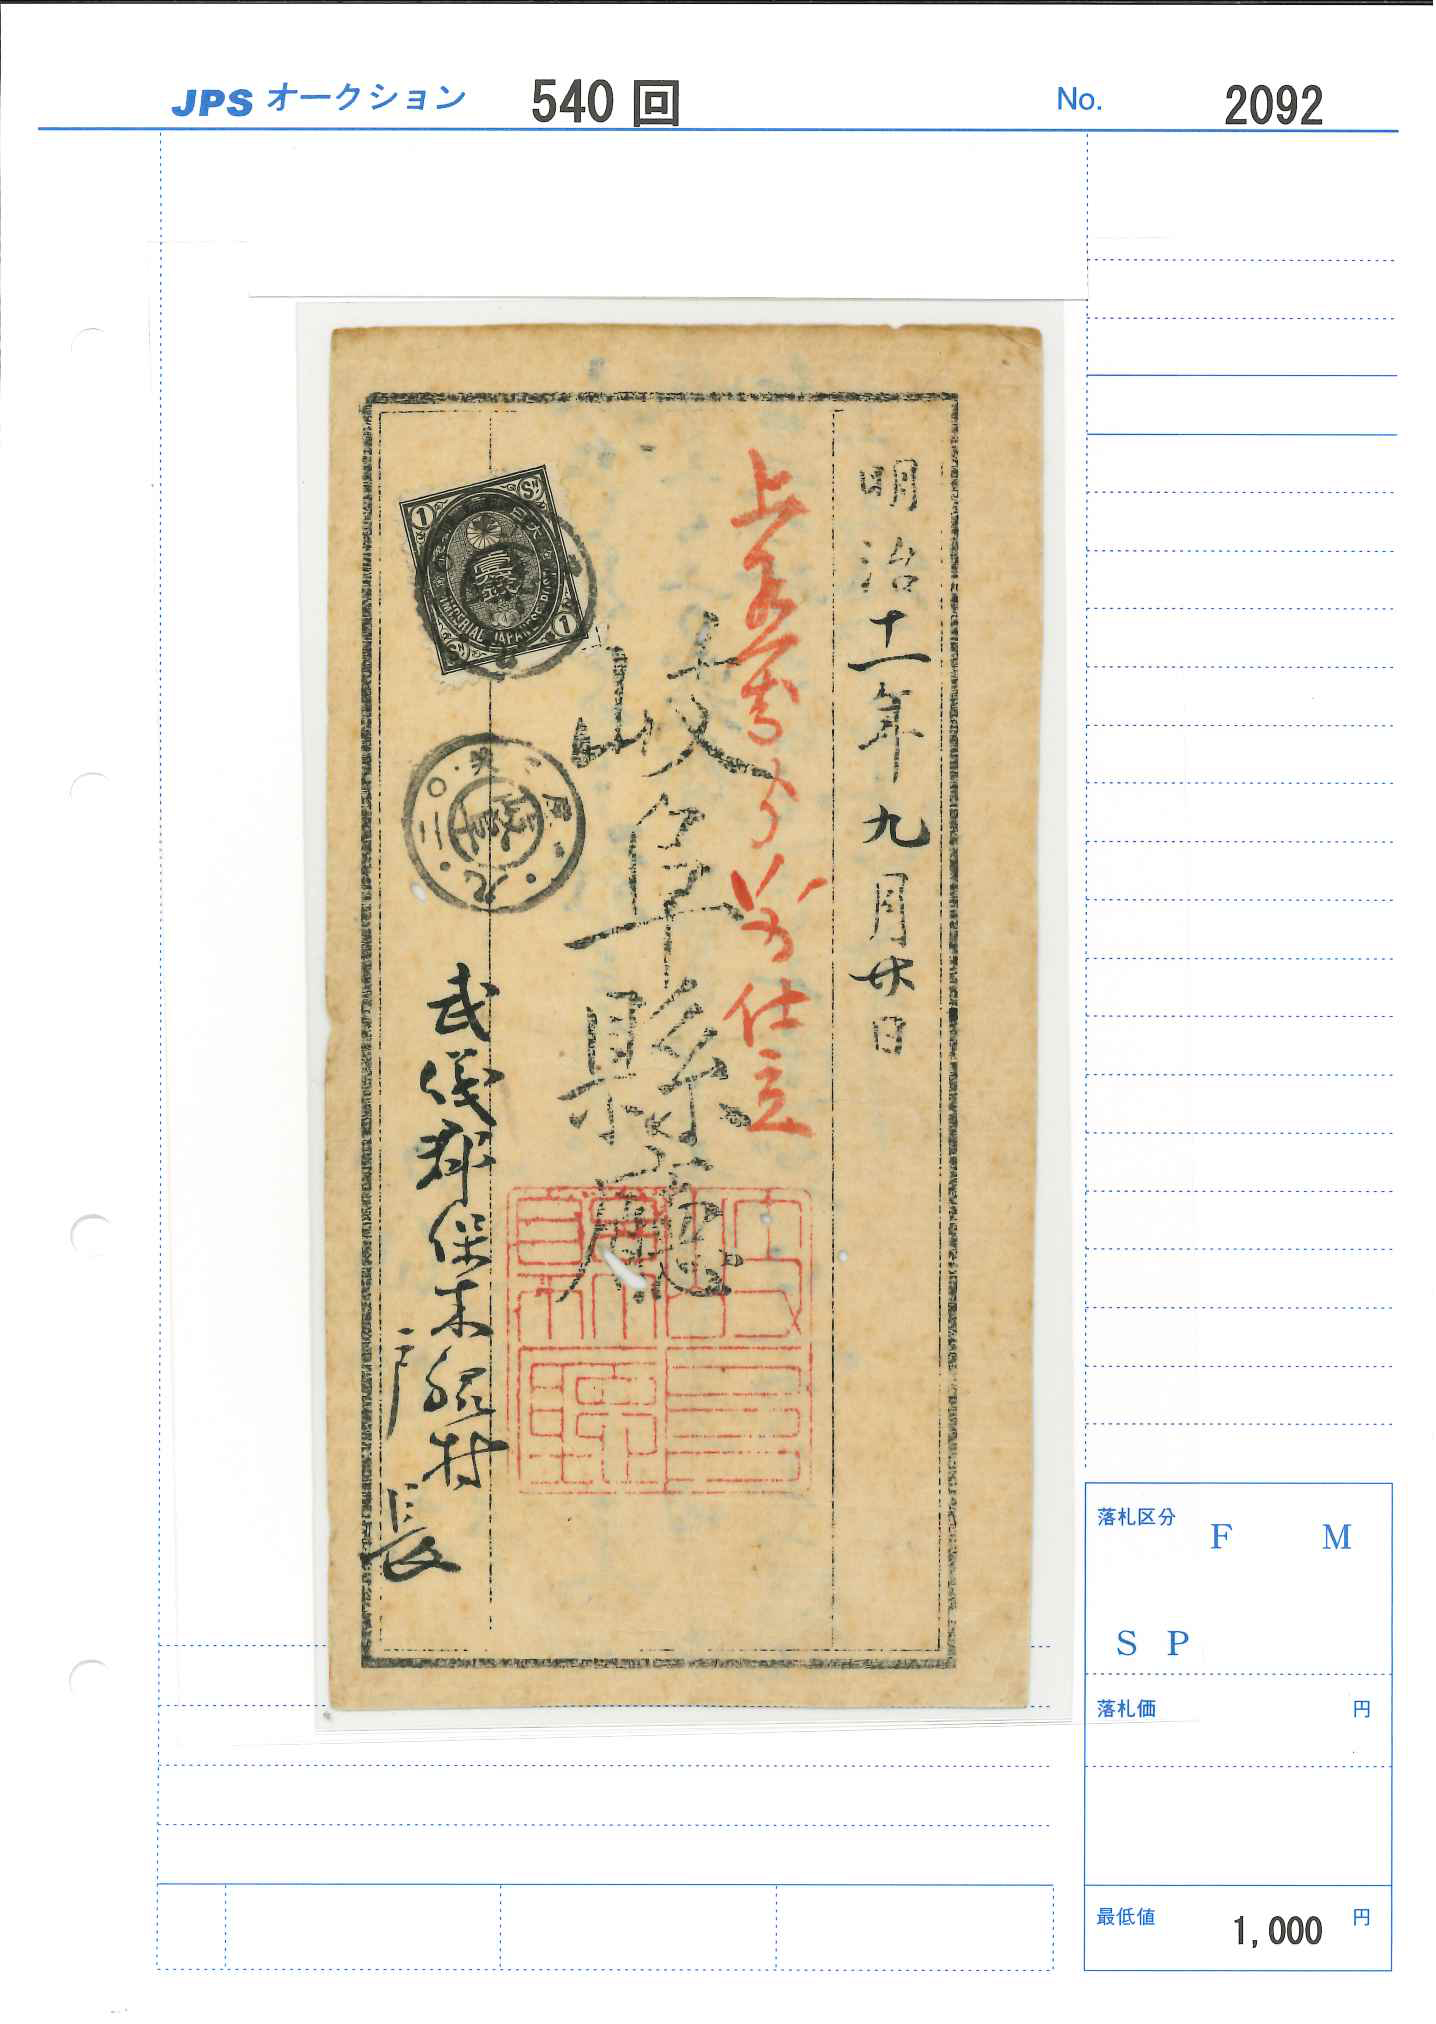 JPS オークション 540 回 No. 2092
明治十一年九月廿日
岐阜縣廳
武儀郡保木脇村
戸長
1 Sn
大日
壹銭
IMPERIAL JAPANESE POST
1
岐阜
落札区分 F M
S P
落札価 円
最低値 1,000 円